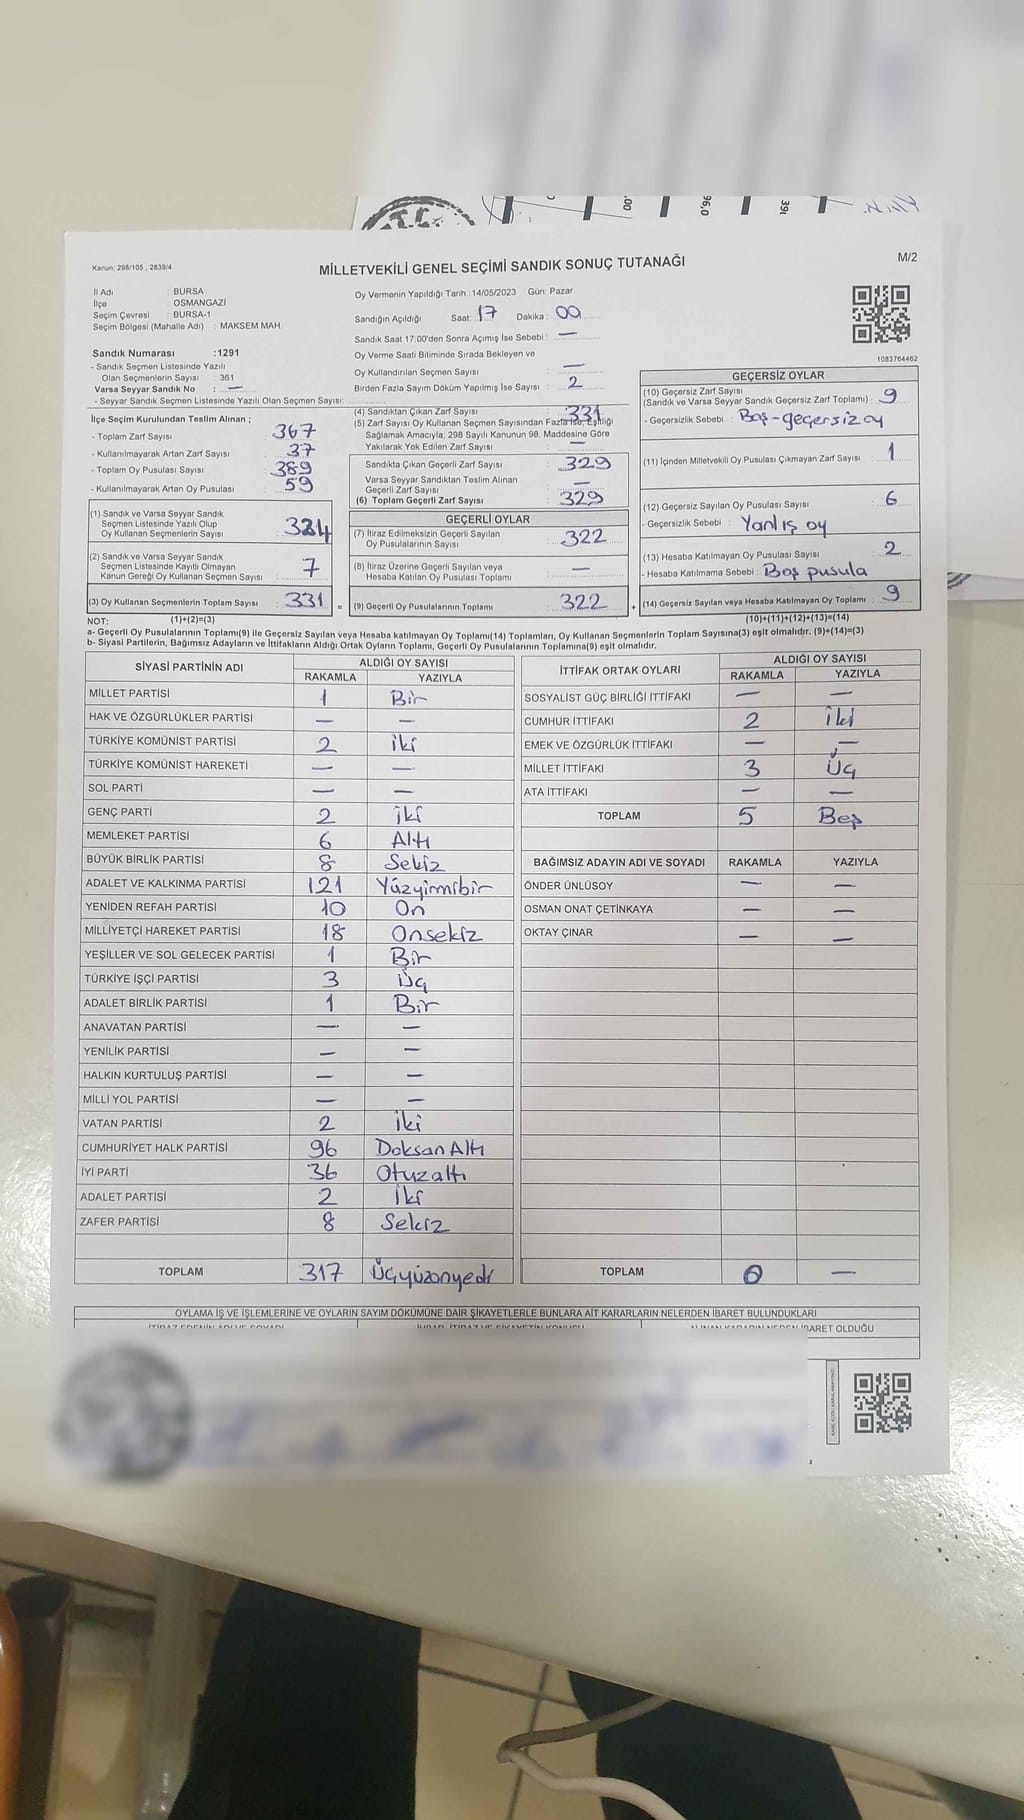 Kanun; 298/105 , 2839/4
MİLLETVEKİLİ GENEL SEÇİMİ SANDIK SONUÇ TUTANAĞI
M/2
İl Adı : BURSA
İlçe : OSMANGAZİ
Seçim Çevresi : BURSA-1
Seçim Bölgesi (Mahalle Adı) : MAKSEM MAH.
Sandık Numarası :1291
- Sandık Seçmen Listesinde Yazılı
Olan Seçmenlerin Sayısı : 361
Varsa Seyyar Sandık No : —
- Seyyar Sandık Seçmen Listesinde Yazılı Olan Seçmen Sayısı:
Oy Vermenin Yapıldığı Tarih :14/05/2023 Gün: Pazar
Sandığın Açıldığı Saat: 17 Dakika : 00
Sandık Saat 17:00'den Sonra Açılmış İse Sebebi : —
Oy Verme Saati Bitiminde Sırada Bekleyen ve
Oy Kullandırılan Seçmen Sayısı : —
Birden Fazla Sayım Döküm Yapılmış İse Sayısı : 2
1083764462
İlçe Seçim Kurulundan Teslim Alınan ;
- Toplam Zarf Sayısı : 367
- Kullanılmayarak Artan Zarf Sayısı : 37
- Toplam Oy Pusulası Sayısı : 389
- Kullanılmayarak Artan Oy Pusulası : 59
(1) Sandık ve Varsa Seyyar Sandık
Seçmen Listesinde Yazılı Olup
Oy Kullanan Seçmenlerin Sayısı : 324
(2) Sandık ve Varsa Seyyar Sandık
Seçmen Listesinde Kayıtlı Olmayan
Kanun Gereği Oy Kullanan Seçmen Sayısı : 7
(3) Oy Kullanan Seçmenlerin Toplam Sayısı : 331 =
(4) Sandıktan Çıkan Zarf Sayısı : 331
(5) Zarf Sayısı Oy Kullanan Seçmen Sayısından Fazla İse, Eşitliği
Sağlamak Amacıyla; 298 Sayılı Kanunun 98. Maddesine Göre
Yakılarak Yok Edilen Zarf Sayısı : —
Sandıkta Çıkan Geçerli Zarf Sayısı : 329
Varsa Seyyar Sandıktan Teslim Alınan
Geçerli Zarf Sayısı : —
(6) Toplam Geçerli Zarf Sayısı : 329
GEÇERLİ OYLAR
(7) İtiraz Edilmeksizin Geçerli Sayılan
Oy Pusulalarının Sayısı : 322
(8) İtiraz Üzerine Geçerli Sayılan veya
Hesaba Katılan Oy Pusulası Toplamı : —
(9) Geçerli Oy Pusulalarının Toplamı : 322 +
GEÇERSİZ OYLAR
(10) Geçersiz Zarf Sayısı
(Sandık ve Varsa Seyyar Sandık Geçersiz Zarf Toplamı) : 9
- Geçersizlik Sebebi : Boş-geçersiz oy
(11) İçinden Milletvekili Oy Pusulası Çıkmayan Zarf Sayısı : 1
(12) Geçersiz Sayılan Oy Pusulası Sayısı : 6
- Geçersizlik Sebebi : Yanlış oy
(13) Hesaba Katılmayan Oy Pusulası Sayısı : 2
- Hesaba Katılmama Sebebi : Boş pusula
(14) Geçersiz Sayılan veya Hesaba Katılmayan Oy Toplamı : 9
NOT: (1)+(2)=(3) (10)+(11)+(12)+(13)=(14)
a- Geçerli Oy Pusulalarının Toplamı(9) ile Geçersiz Sayılan veya Hesaba katılmayan Oy Toplamı(14) Toplamları, Oy Kullanan Seçmenlerin Toplam Sayısına(3) eşit olmalıdır. (9)+(14)=(3)
b- Siyasi Partilerin, Bağımsız Adayların ve İttifakların Aldığı Ortak Oyların Toplamı, Geçerli Oy Pusulalarının Toplamına(9) eşit olmalıdır.
SİYASİ PARTİNİN ADI ALDIĞI OY SAYISI
RAKAMLA YAZIYLA
MİLLET PARTİSİ 1 Bir
HAK VE ÖZGÜRLÜKLER PARTİSİ — —
TÜRKİYE KOMÜNİST PARTİSİ 2 iki
TÜRKİYE KOMÜNİST HAREKETİ — —
SOL PARTİ — —
GENÇ PARTİ 2 iki
MEMLEKET PARTİSİ 6 Altı
BÜYÜK BİRLİK PARTİSİ 8 Sekiz
ADALET VE KALKINMA PARTİSİ 121 Yüzyirmibir
YENİDEN REFAH PARTİSİ 10 On
MİLLİYETÇİ HAREKET PARTİSİ 18 Onsekiz
YEŞİLLER VE SOL GELECEK PARTİSİ 1 Bir
TÜRKİYE İŞÇİ PARTİSİ 3 Üç
ADALET BİRLİK PARTİSİ 1 Bir
ANAVATAN PARTİSİ — —
YENİLİK PARTİSİ — —
HALKIN KURTULUŞ PARTİSİ — —
MİLLİ YOL PARTİSİ — —
VATAN PARTİSİ 2 iki
CUMHURİYET HALK PARTİSİ 96 Doksan Altı
İYİ PARTİ 36 Otuzaltı
ADALET PARTİSİ 2 İki
ZAFER PARTİSİ 8 Sekiz
TOPLAM 317 Üçyüzonyedi
İTTİFAK ORTAK OYLARI ALDIĞI OY SAYISI
RAKAMLA YAZIYLA
SOSYALİST GÜÇ BİRLİĞİ İTTİFAKI — —
CUMHUR İTTİFAKI 2 iki
EMEK VE ÖZGÜRLÜK İTTİFAKI — —
MİLLET İTTİFAKI 3 Üç
ATA İTTİFAKI — —
TOPLAM 5 Beş
BAĞIMSIZ ADAYIN ADI VE SOYADI RAKAMLA YAZIYLA
ÖNDER ÜNLÜSOY — —
OSMAN ONAT ÇETİNKAYA — —
OKTAY ÇINAR — —
TOPLAM 0 —
OYLAMA İŞ VE İŞLEMLERİNE VE OYLARIN SAYIM DÖKÜMÜNE DAİR ŞİKAYETLERLE BUNLARA AİT KARARLARIN NELERDEN İBARET BULUNDUKLARI